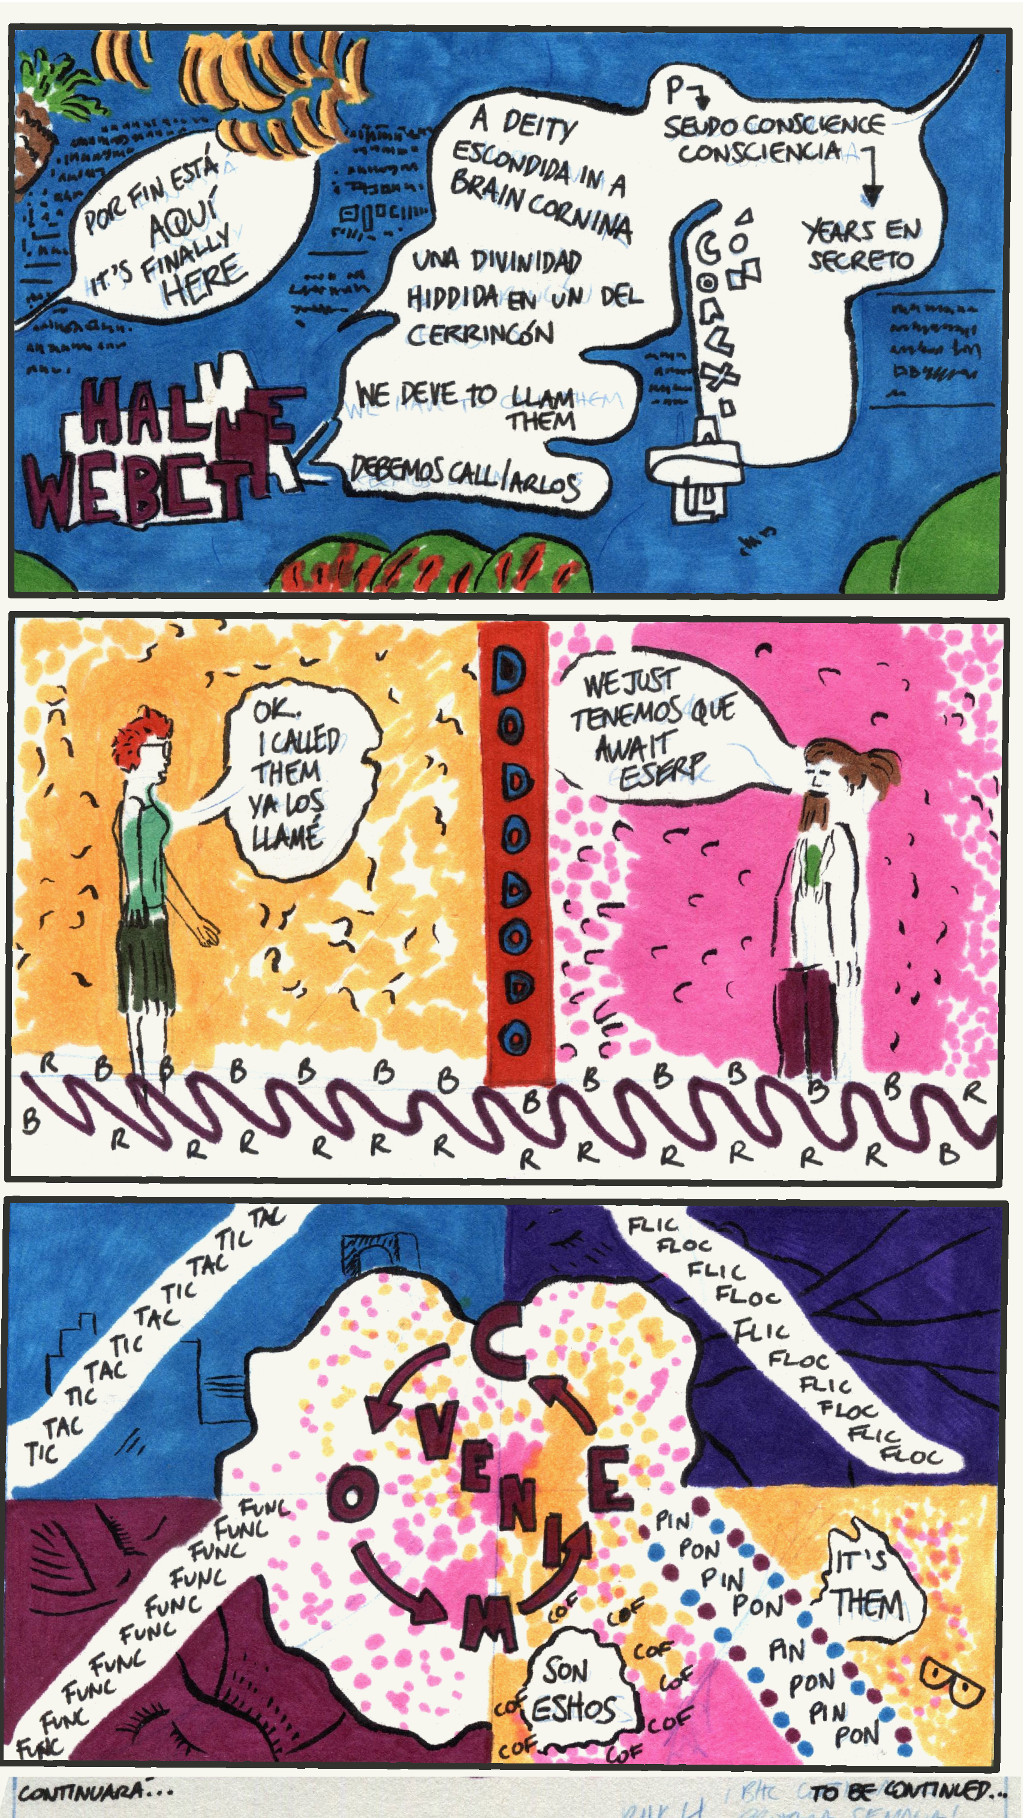 POR FIN ESTÁ
AQUÍ
IT'S FINALLY
HERE
A DEITY
ESCONDIDA IN A
BRAIN CORNINA
UNA DIVINIDAD
HIDDIDA EN UN DEL
CERRINCÓN
WE DEVE TO LLAM
THEM
DEBEMOS CALL/ARLOS
P
SEUDO CONSCIENCE
CONSCIENCIA
YEARS EN
SECRETO
OK.
I CALLED
THEM
YA LOS
LLAMÉ
D
O
D
O
D
O
D
O
WE JUST
TENEMOS QUE
AWAIT
ESERP
R B B B B B B B B B B B R
B R R R R R R R R R R R B
TIC
TAC
TIC
TAC
TIC
TAC
TIC
TAC
TIC
TAC
FLIC
FLOC
FLIC
FLOC
FLIC
FLOC
FLIC
FLOC
FLIC
FLOC
C
O
M
E
VENI
FUNC
FUNC
FUNC
FUNC
FUNC
FUNC
FUNC
FUNC
FUNC
FUNC
PIN
PON
PIN
PON
PIN
PON
PIN
PON
IT'S
THEM
COF
COF
COF
COF
COF
COF
COF
COF
SON
ESHOS
CONTINUARÁ...
TO BE CONTINUED...